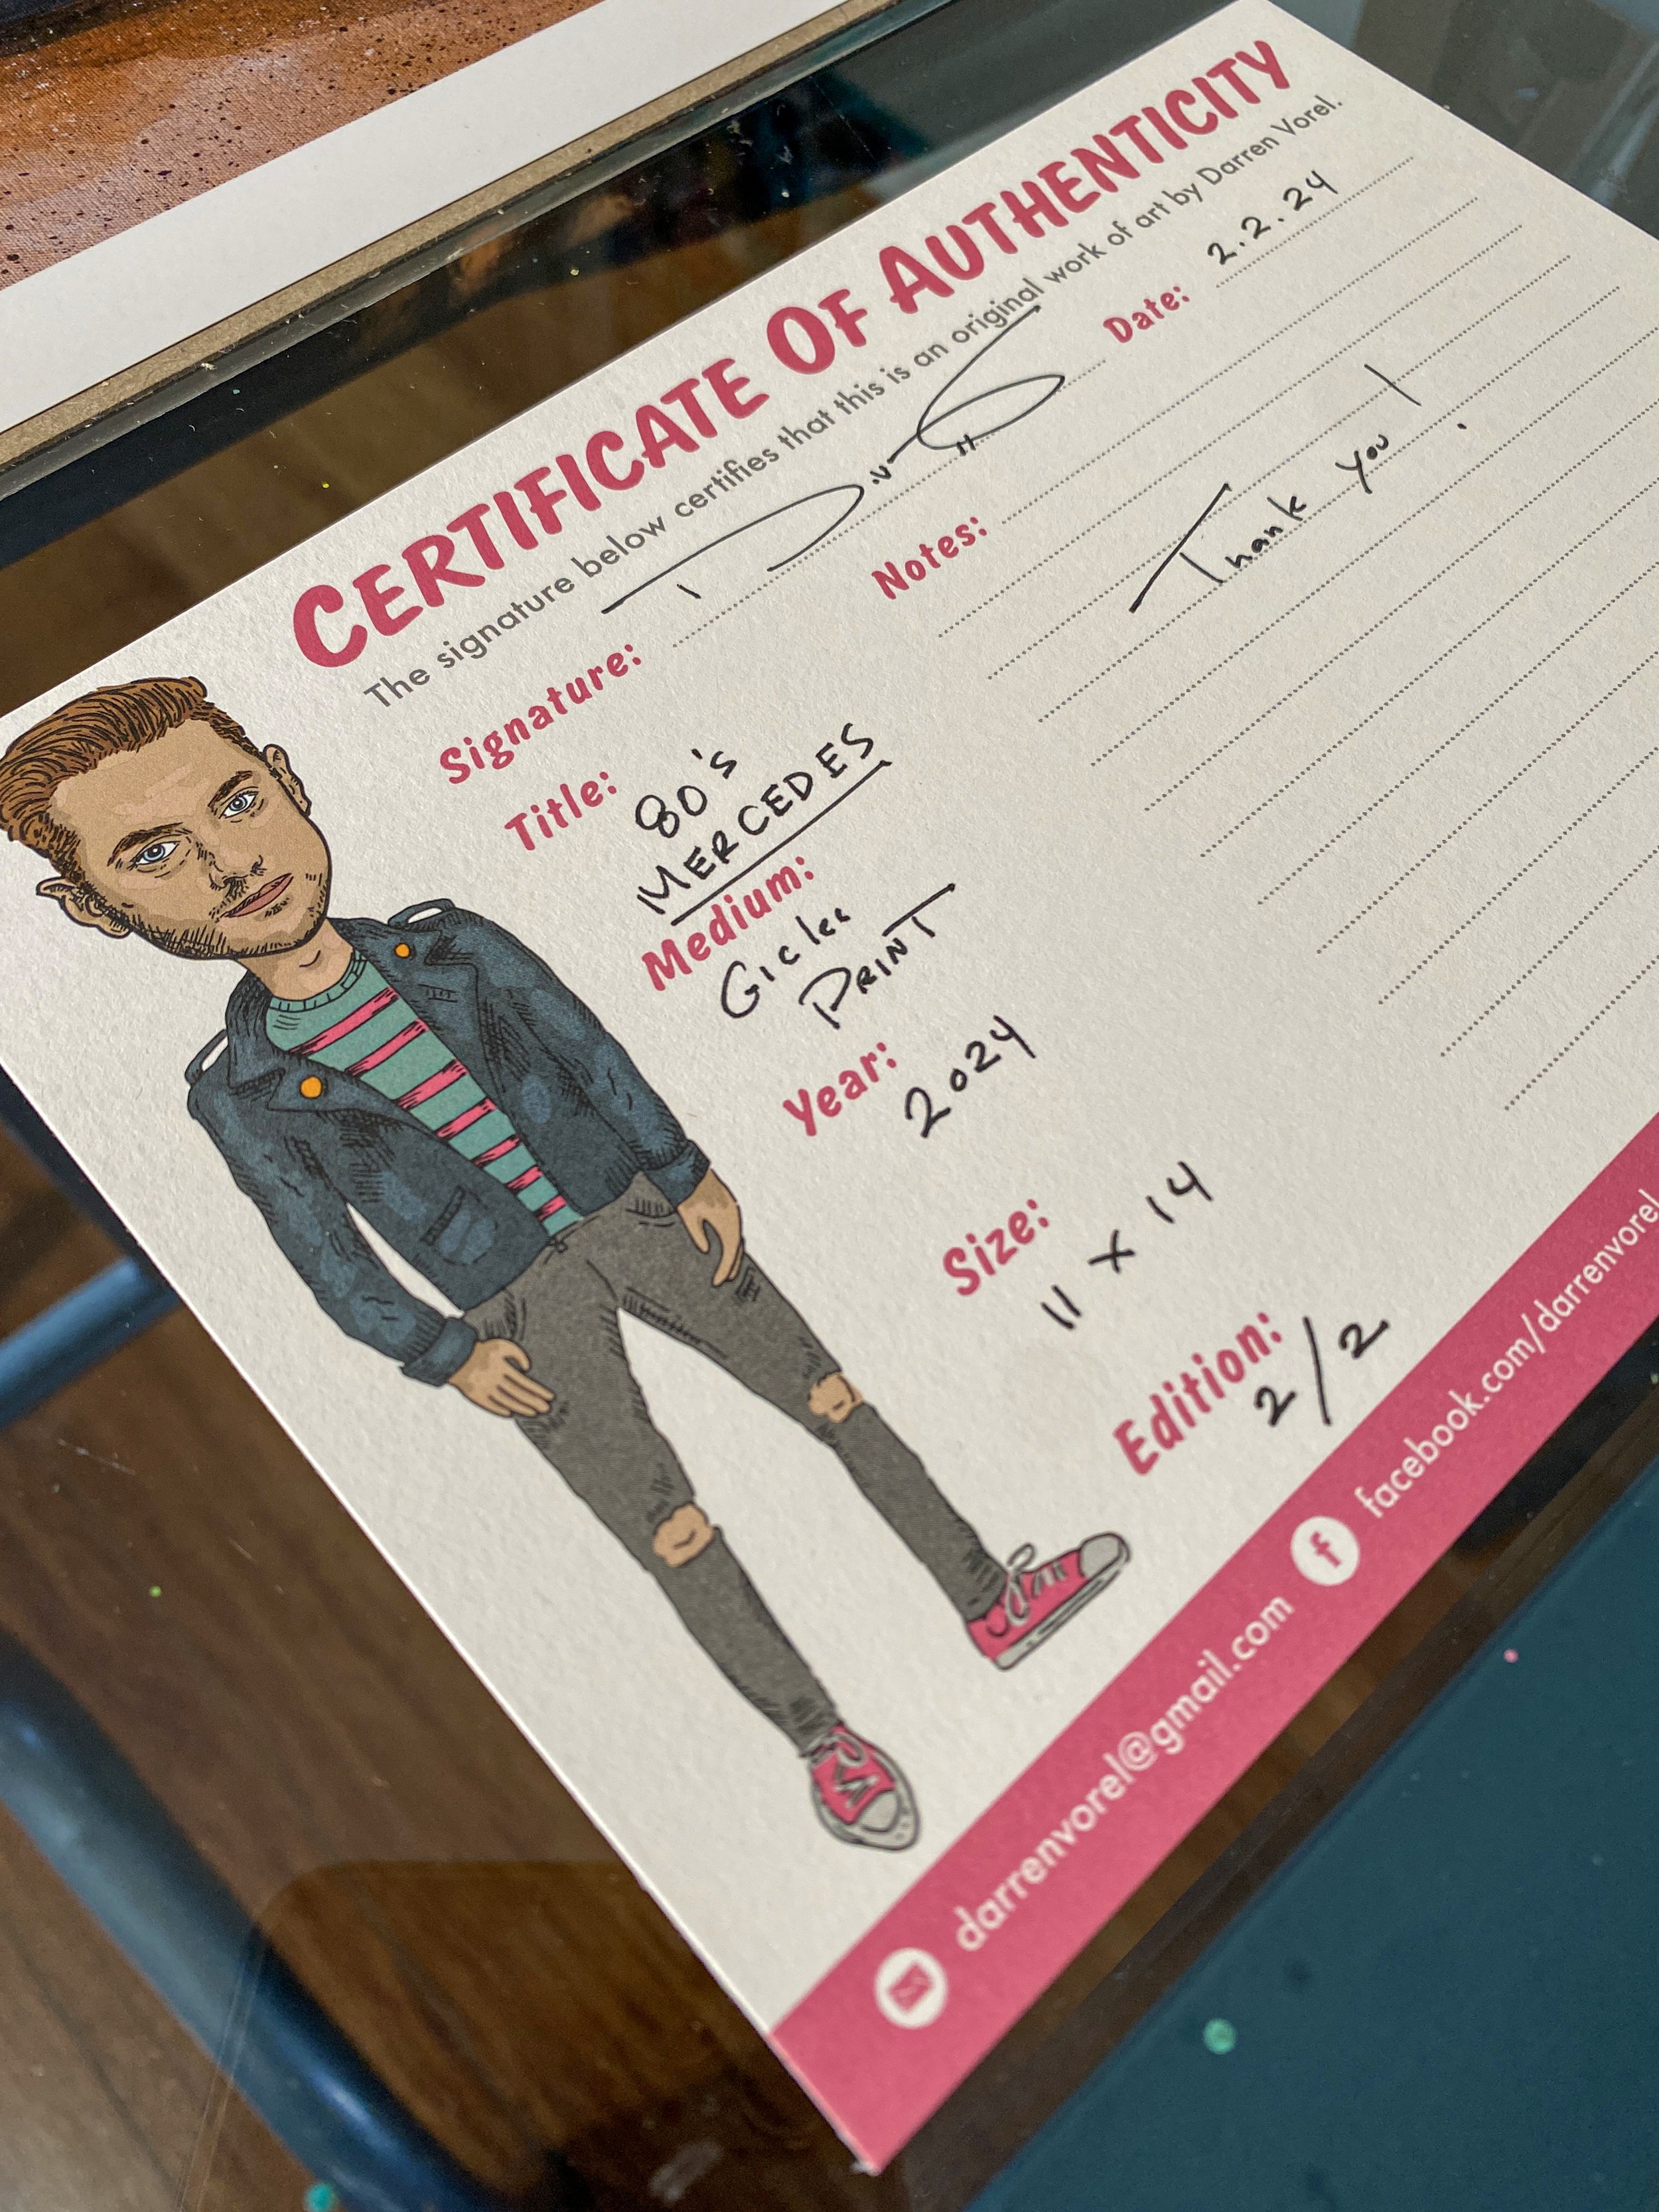 CERTIFICATE OF AUTHENTICITY
The signature below certifies that this is an original work of art by Darren Vorel.
Signature:
Date: 2.2.24
Title: 80's
MERCEDES
Medium:
Giclee
PRINT
Year:
2024
Size:
11 x 14
Edition:
2/2
Notes:
Thank you!
darrenvorel@gmail.com
facebook.com/darrenvorel